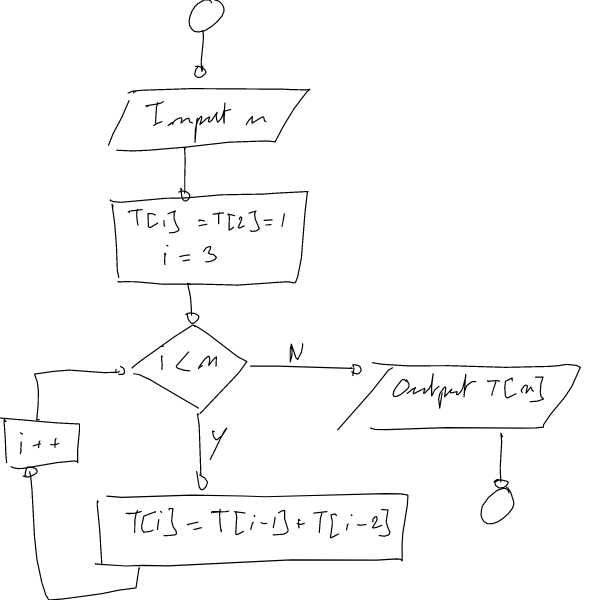 Input n
T[1] = T[2] = 1
i = 3
i < n
N
Output T[n]
Y
i++
T[i] = T[i-1] + T[i-2]